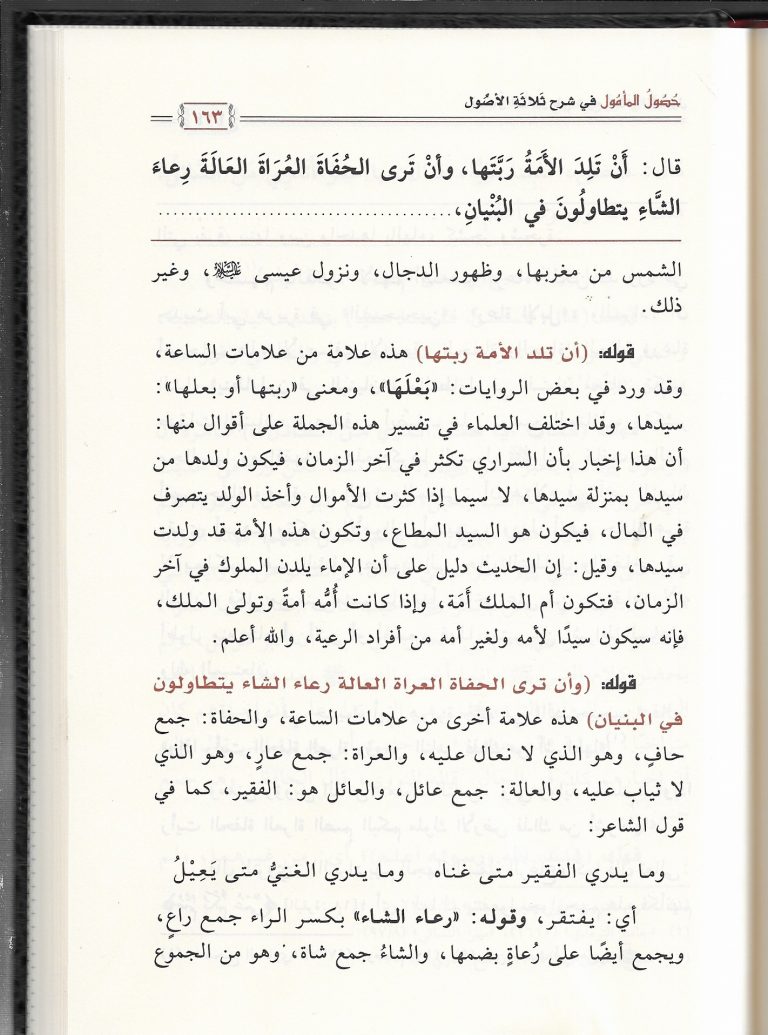 حُصُولُ المأمُول في شرح ثَلاثَةِ الأصُول
١٦٣
قال: أَنْ تَلِدَ الأَمَةُ رَبَّتَها، وأنْ تَرى الحُفَاةَ العُرَاةَ العَالَةَ رِعاءَ
الشَّاءِ يتطاولُونَ في البُنْيانِ،......................................
الشمس من مغربها، وظهور الدجال، ونزول عيسى عليه السلام، وغير
ذلك.
قوله: (أن تلد الأمة ربتها) هذه علامة من علامات الساعة،
وقد ورد في بعض الروايات: «بَعْلَهَا»، ومعنى «ربتها أو بعلها»:
سيدها، وقد اختلف العلماء في تفسير هذه الجملة على أقوال منها:
أن هذا إخبار بأن السراري تكثر في آخر الزمان، فيكون ولدها من
سيدها بمنزلة سيدها، لا سيما إذا كثرت الأموال وأخذ الولد يتصرف
في المال، فيكون هو السيد المطاع، وتكون هذه الأمة قد ولدت
سيدها، وقيل: إن الحديث دليل على أن الإماء يلدن الملوك في آخر
الزمان، فتكون أم الملك أَمَة، وإذا كانت أُمُّه أمةً وتولى الملك،
فإنه سيكون سيدًا لأمه ولغير أمه من أفراد الرعية، والله أعلم.
قوله: (وأن ترى الحفاة العراة العالة رعاء الشاء يتطاولون
في البنيان) هذه علامة أخرى من علامات الساعة، والحفاة: جمع
حافٍ، وهو الذي لا نعال عليه، والعراة: جمع عارٍ، وهو الذي
لا ثياب عليه، والعالة: جمع عائل، والعائل هو: الفقير، كما في
قول الشاعر:
وما يدري الفقير متى غناه وما يدري الغنيُّ متى يَعِيْلُ
أي: يفتقر، وقوله: «رعاء الشاء» بكسر الراء جمع راعٍ،
ويجمع أيضًا على رُعاةٍ بضمها، والشاءُ جمع شاة، وهو من الجموع